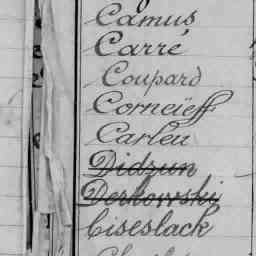 Camus
Carré
Coupard
Corneïeff
Carleu
Didzun
Derkowski
Ciseslack